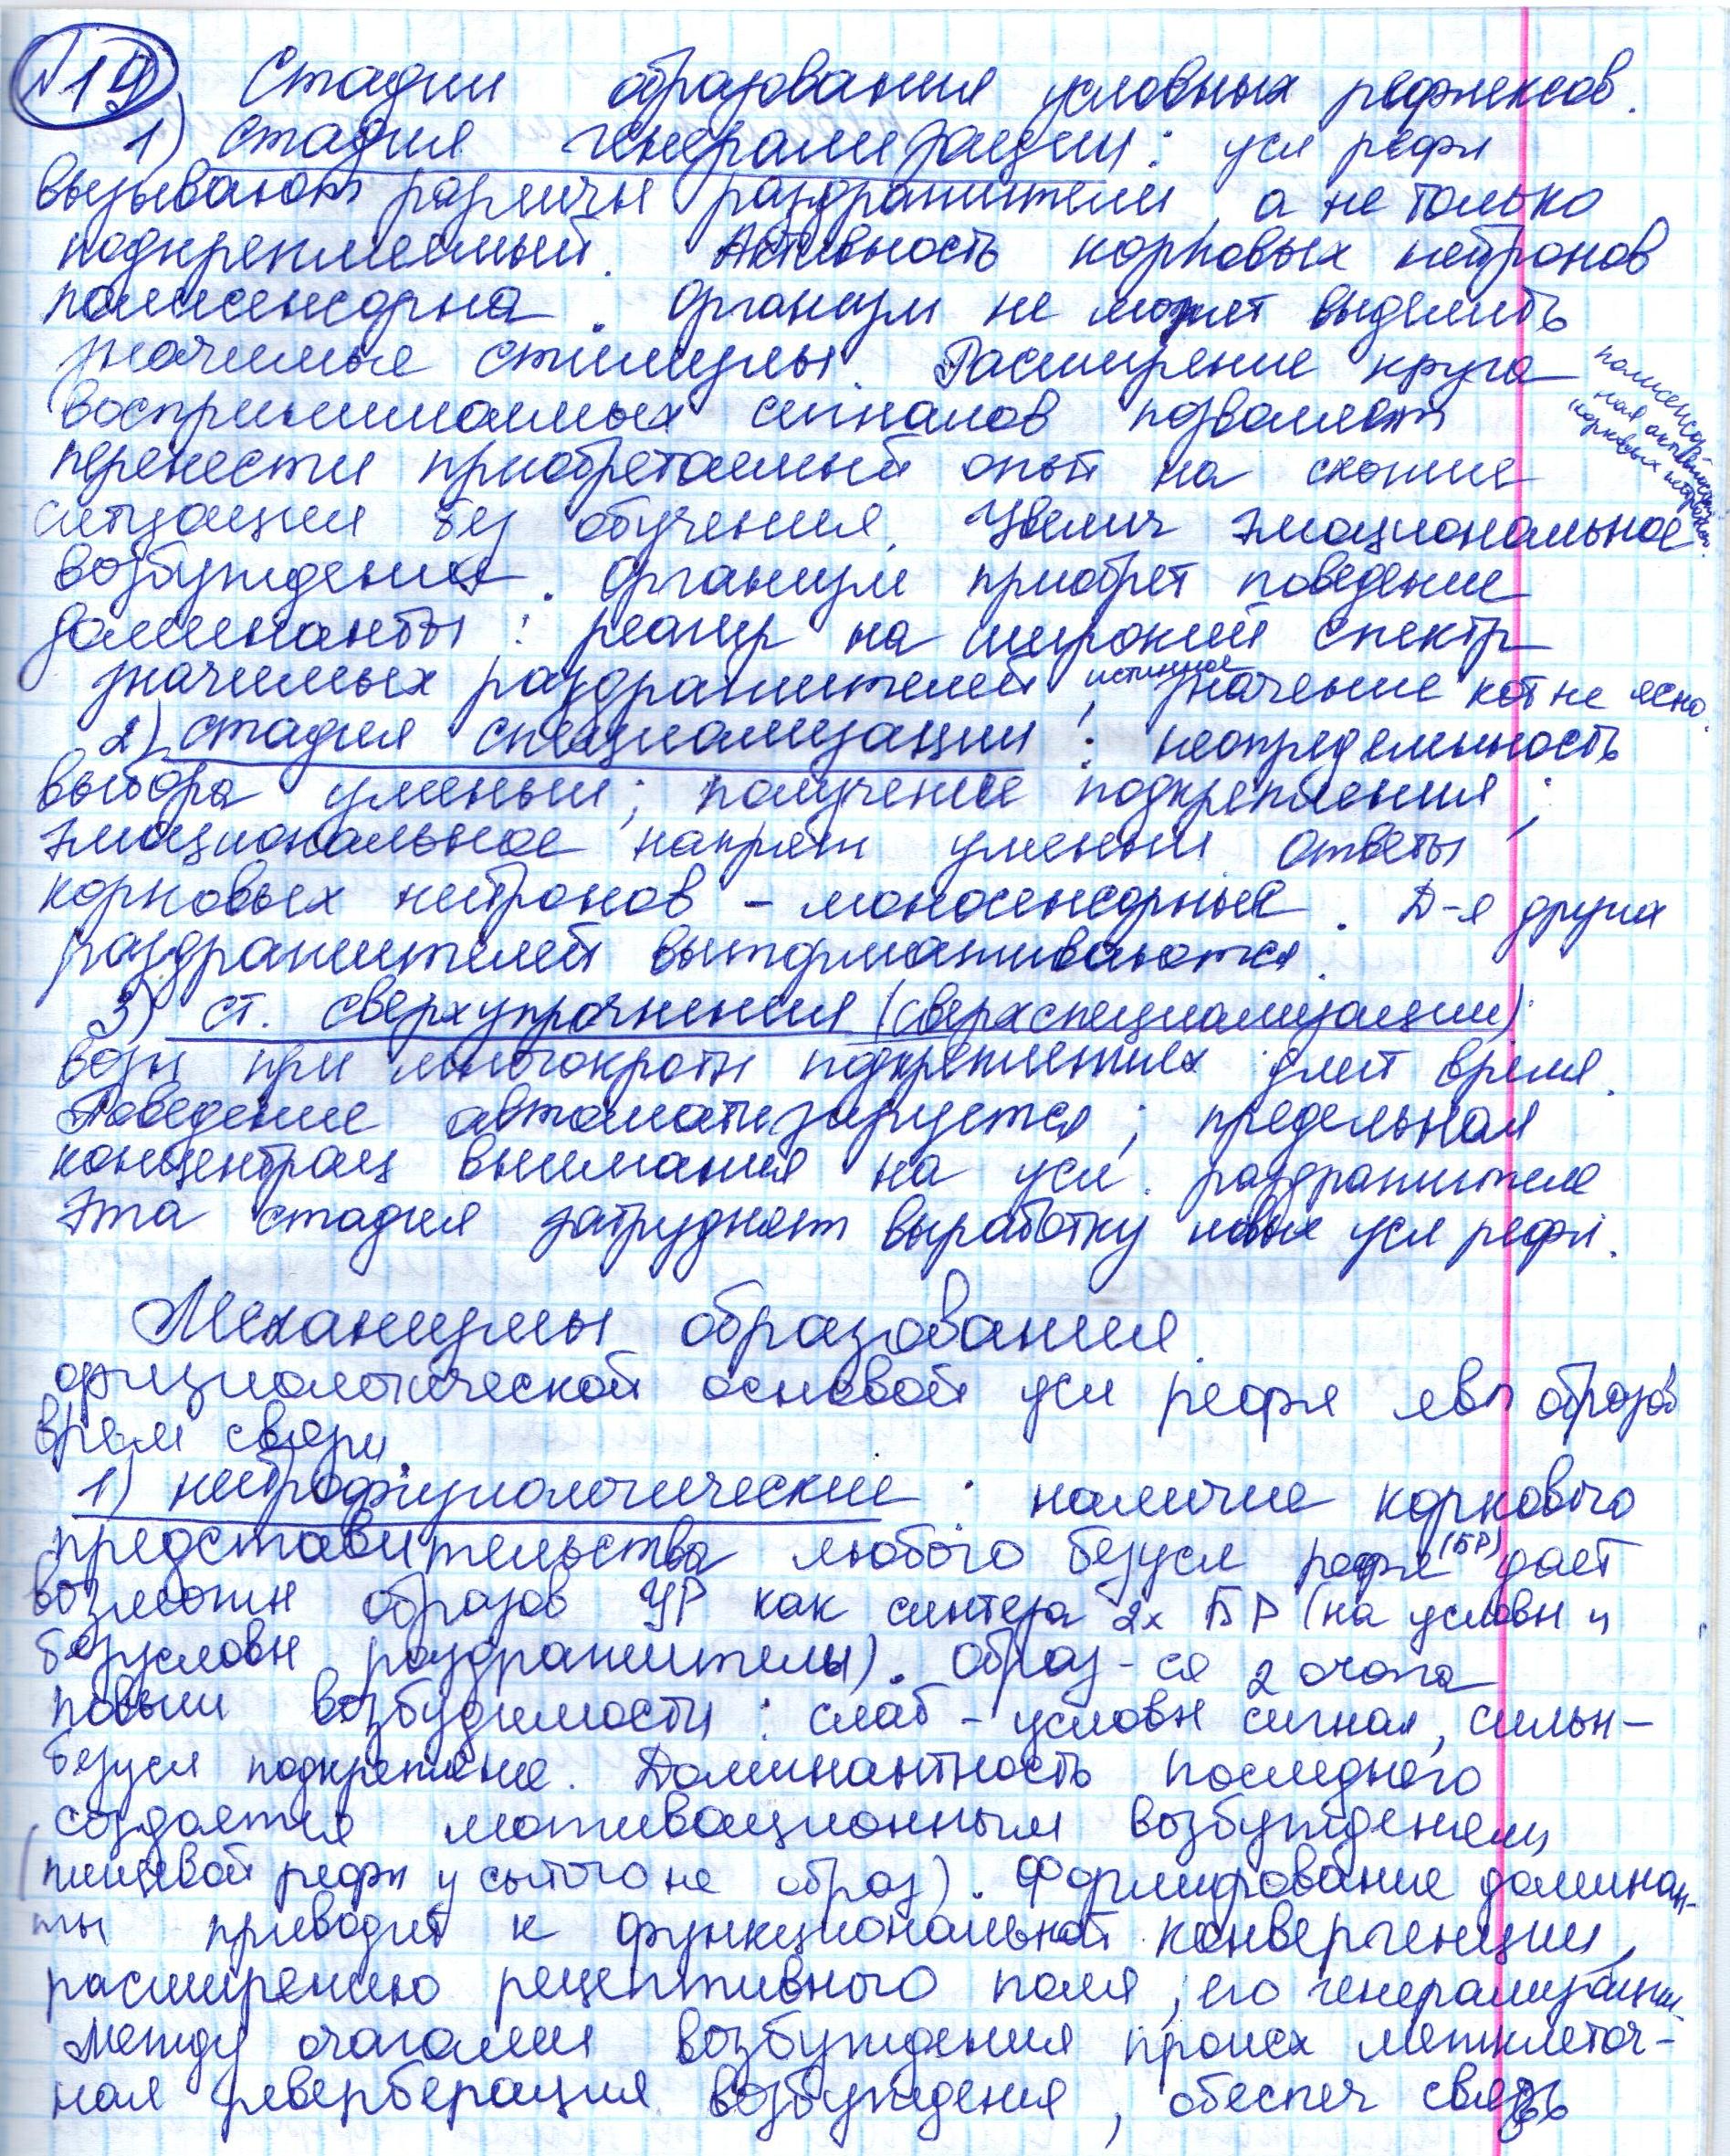 №19 Стадии образования условных рефлексов.
1) стадия генерализации: усл рефл
вызывают различн раздражители, а не только
подкрепляемый. Активность корковых нейронов
полисенсорна. Организм не может выделить
значимые стимулы. Расширение круга
воспринимаемых сигналов позволяет
перенести приобретаемый опыт на схожие
ситуации без обучения. Увелич эмоциональное
возбуждение. Организм приобрет поведение
доминанты: реагир на широкий спектр
значимых раздражителей, истинное значение кот не ясно.
полисенсор-
ная активность
корковых нейронов.
2) стадия специализации: неопределенность
выбора уменьш; получение подкрепления;
эмоциональное напряж уменьш ответы
корковых нейронов - моносенсорные. Д-я других
раздражителей вытормаживаются.
3) ст. сверхупрочнения (сверхспециализации):
возн при многократн подкреплениях длит время.
Поведение автоматизируется; предельная
концентрац внимания на усл. раздражителе
Эта стадия затрудняет выработку новых усл рефл.
Механизмы образования.
физиологической основой усл рефл явл образов
врем связи.
1) нейрофизиологические: наличие коркового
представительства любого безусл рефл (БР) дает
возможн образов УР как синтеза 2х БР (на условн и
безусловн раздражитель). Образ-ся 2 очага
повыш возбудимости: слаб - условн сигнал, сильн -
безусл подкрепление. Доминантность последнего
создается мотивационным возбуждением
(пищевой рефл у сытого не образ). Формирование доминан-
ты приводит к функциональной конвергенции,
расширению рецептивного поля, его генерализации.
Между очагами возбуждения происх межклеточ-
ная реверберация возбуждения, обеспеч связь